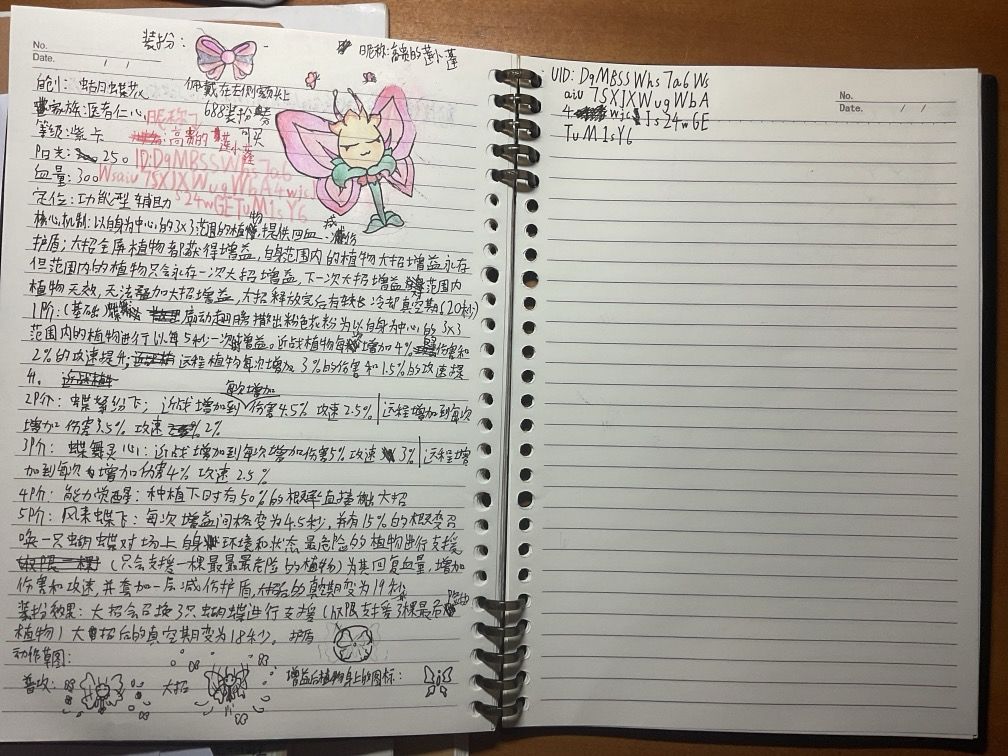 No.
Date. / /
装扮：
昵称：高贵的莲小蓬
自创：蛄月蝶蚊
佩戴在右侧额头处
家族：医者仁心
688装扮券可买
昵称：高贵的莲小蓬
等级：紫卡
阳光：250
ID:DqMBSSWhs7a6
Wsaiu7SXJXWugWbA4wjc
s24wGETuM1sY6
血量：300
定位：功能型辅助
核心机制：以自身为中心的3×3范围的植物提供回血、减伤
护盾；大招全屏植物都获得增益，自身范围内的植物大招增益永在
但范围内的植物只会永在一次大招增益，下一次大招增益对范围内
植物无效，无法叠加大招增益，大招释放完后有转长冷却真空期（20秒）
1阶：（基础）扇动翅膀撒出粉色花粉为以自身为中心的3×3
范围内的植物进行以每5秒一次增益。近战植物每次增加4%伤害和
2%的攻速提升；远程植物每次增加3%的伤害和1.5%的攻速提
升。
2阶：蝶翩纷飞；近战增加到每次增加伤害4.5% 攻速2.5%｜远程增加到每次
增加伤害3.5% 攻速2%
3阶：蝶舞灵心：近战增加到每次增加伤害5% 攻速3%｜远程增
加到每次增加伤害4% 攻速2.5%
4阶：能力觉醒：种植下时有50%的概率直接放出大招
5阶：风来蝶飞：每次增益间格变为4.5秒，并有15%的概率召
唤一只蝴蝶对场上自身环境和状态最危险的植物进行支援
（只会支援一棵最最最危险的植物）为其回复血量，增加
伤害和攻速，并套加一层减伤护盾，大招后的真空期变为19秒
装扮效果：大招会召换3只蝴蝶进行支援（极限支援3棵最危险的
植物）大招后的真空期变为18秒。 护盾
动作草图：
普攻：
大招
增益后植物身上的图标：
UID: DqMBSSWhs7a6Ws
aiu7SXJXWugWbA
4wjcs24wGE
TuM1sY6
No.
Date. / /